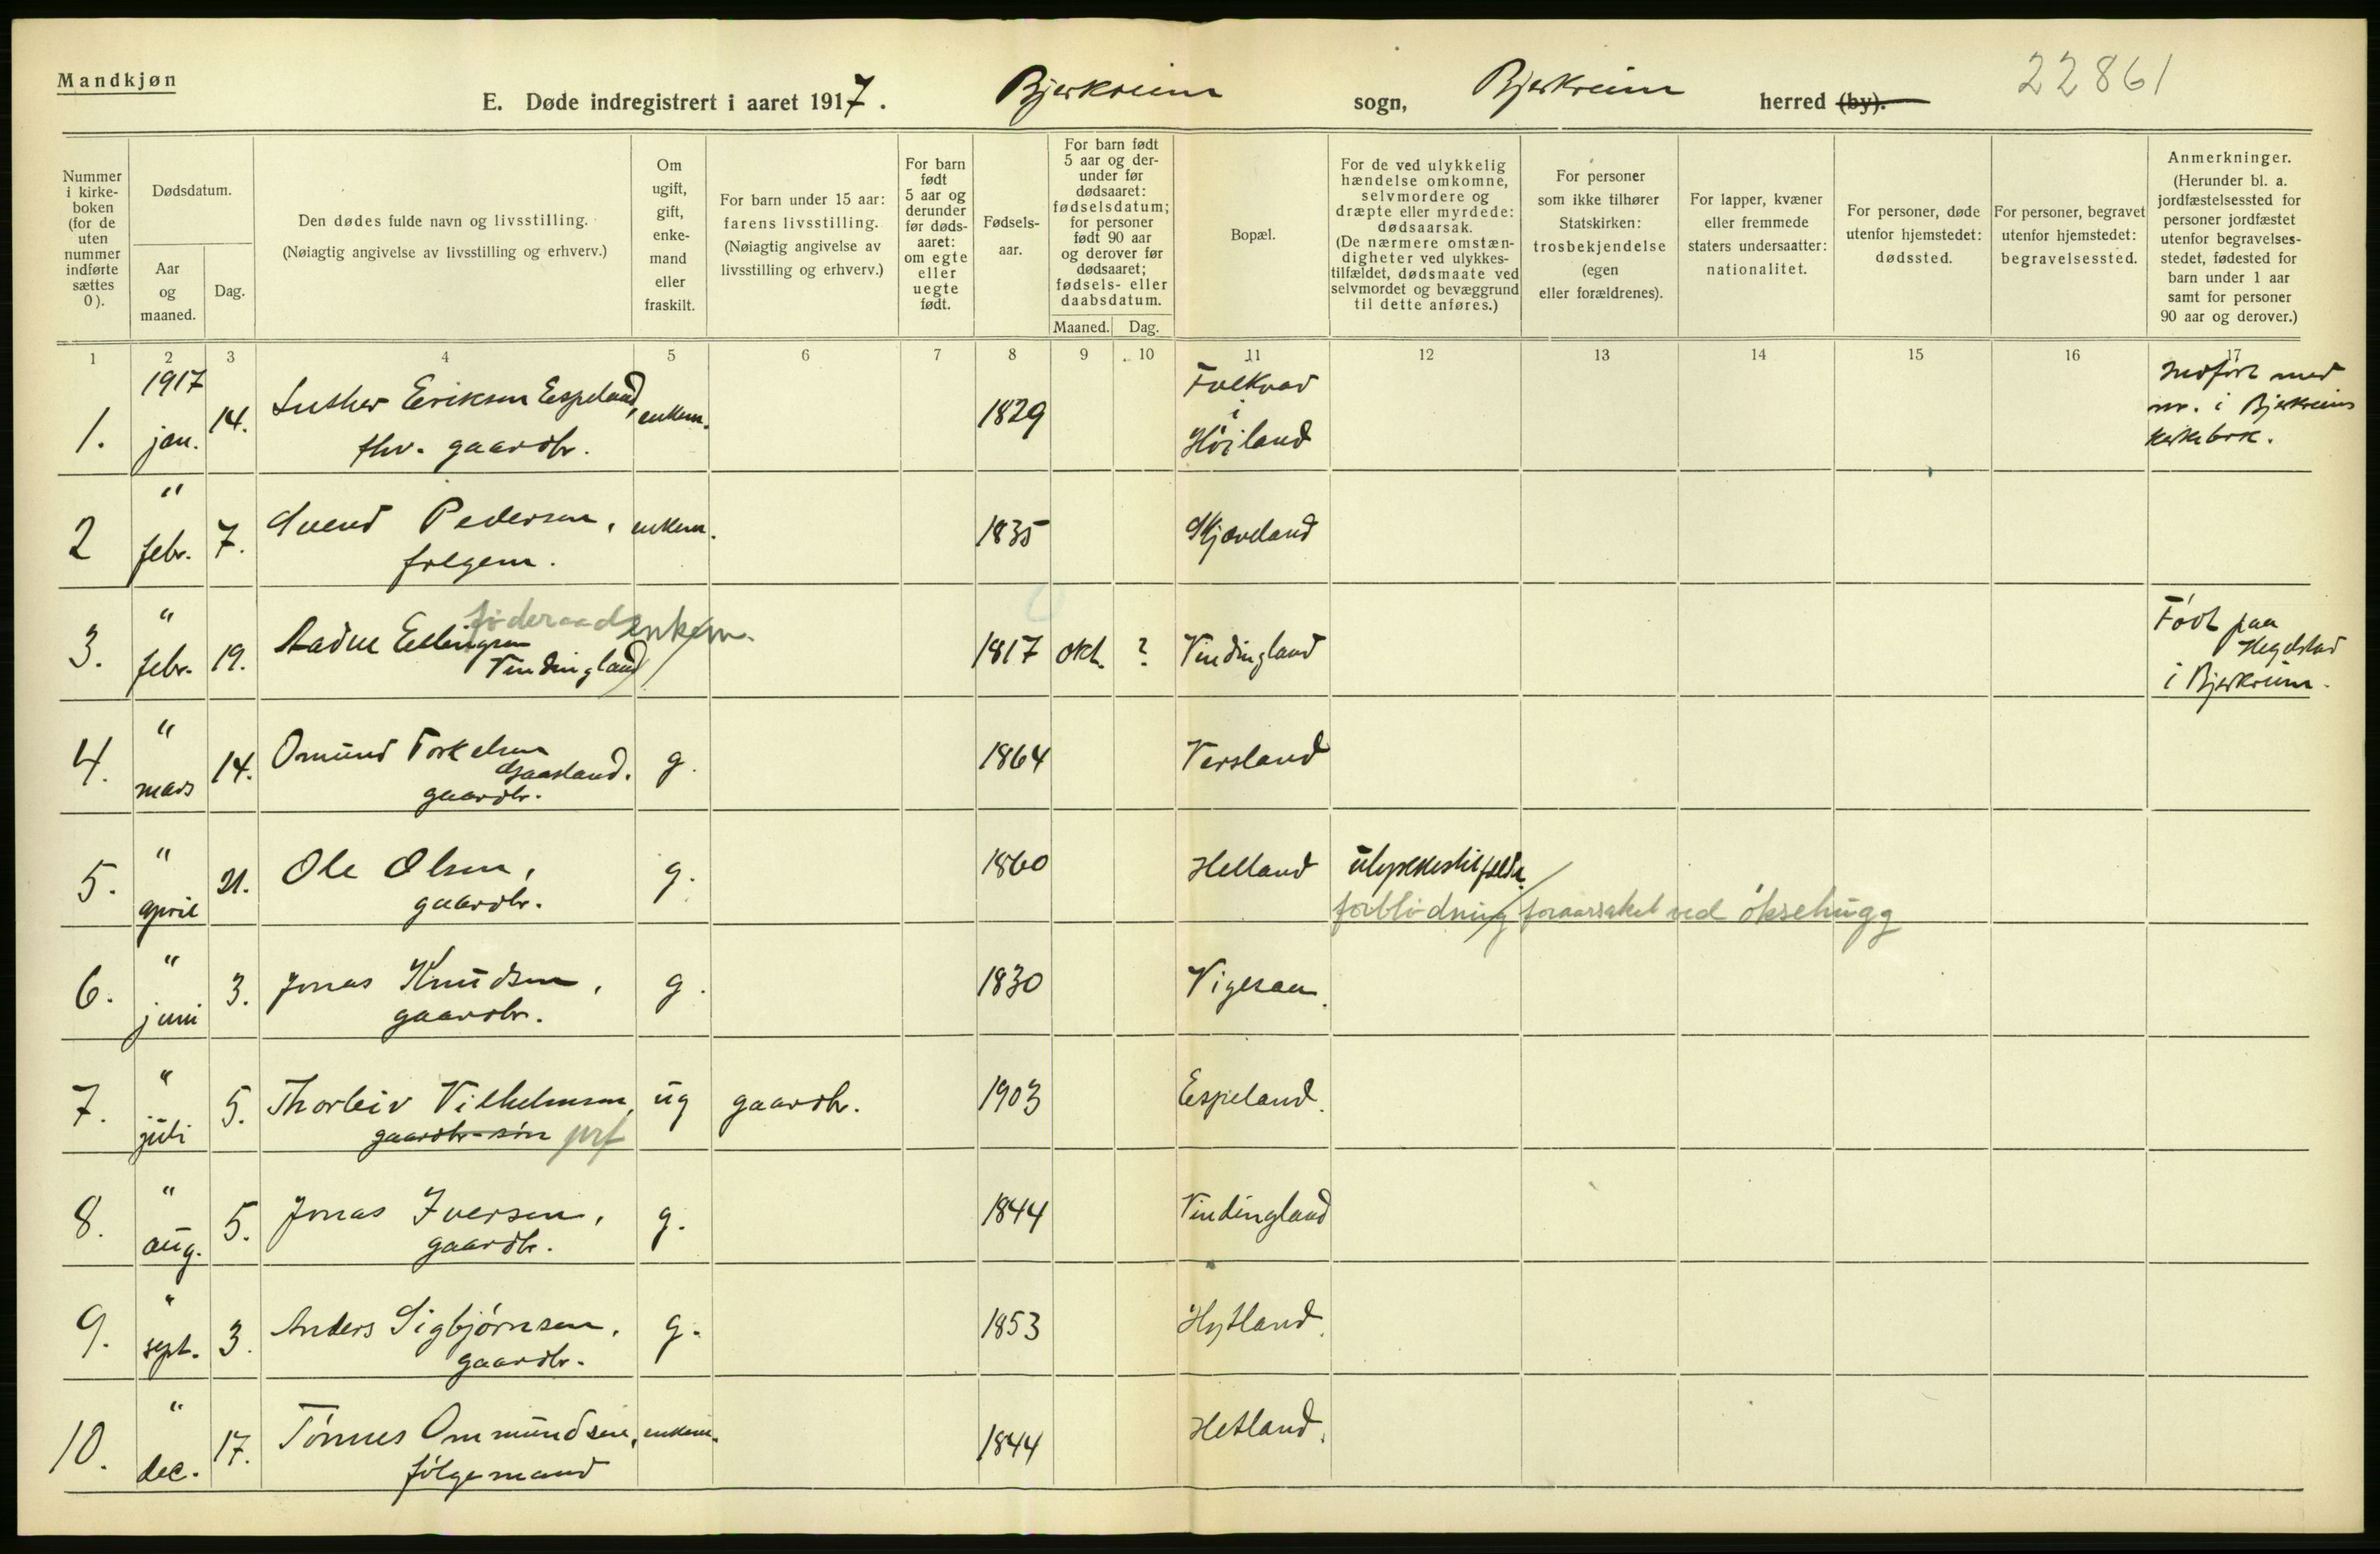 Mandkjøn
E. Døde indregistrert i aaret 1917. Bjerkreim sogn, Bjerkreim herred (by). 22861
Nummer i kirkeboken (for de uten nummer indførte sættes 0).
Dødsdatum.
Aar og maaned.
Dag.
Den dødes fulde navn og livsstilling.
(Nøiagtig angivelse av livsstilling og erhverv.)
Om ugift, gift, enkemand eller fraskilt.
For barn under 15 aar: farens livsstilling. (Nøiagtig angivelse av livsstilling og erhverv.)
For barn født 5 aar og derunder før dødsaaret: om egte eller uegte født.
Fødselsaar.
For barn født 5 aar og derunder før dødsaaret: fødselsdatum; for personer født 90 aar og derover før dødsaaret; fødsels- eller daabsdatum.
Maaned. Dag.
Bopæl.
For de ved ulykkelig hændelse omkomne, selvmordere og dræpte eller myrdede: dødsaarsak. (De nærmere omstændigheter ved ulykkestilfældet, dødsmaate ved selvmordet og bevæggrund til dette anføres.)
For personer som ikke tilhører Statskirken: trosbekjendelse (egen eller forældrenes).
For lapper, kvæner eller fremmede staters undersaatter: nationalitet.
For personer, døde utenfor hjemstedet: dødssted.
For personer, begravet utenfor hjemstedet: begravelsessted.
Anmerkninger. (Herunder bl. a. jordfæstelsessted for personer jordfæstet utenfor begravelsesstedet, fødested for barn under 1 aar samt for personer 90 aar og derover.)
1 2 3 4 5 6 7 8 9 10 11 12 13 14 15 16 17
1. 1917 jan. 14. Luther Eriksen Espeland, fhv. gaardbr. enkem. 1829 Folkvor i Höiland Indført med nr. i Bjerkreims kirkebok.
2 " febr. 7. Svend Pedersen, følgem. enkem. 1835 Skjæveland
3. " febr. 19. Aadne Ellingsen Vindingland føderaad enkem. 1817 okt. ? Vindingland Født paa Hegelstad i Bjerkreim.
4. " mars 14. Omund Torkelsen Gaasland. gaardbr. g. 1864 Versland
5. " april 21. Ole Olsen, gaardbr. g. 1860 Helland ulykkestilfælde forblödning foraarsaket ved öksehugg
6. " juni 3. Jonas Knudsen, gaardbr. g. 1830 Vigesaa.
7. " juli 5. Thorleiv Vilhelmsen, gaardbr-søn prf ug gaardbr. 1903 Espeland.
8. " aug. 5. Jonas Iversen, gaardbr. g. 1844 Vindingland
9. " sept. 3. Anders Sigbjørnsen, gaardbr. g. 1853 Hytland.
10. " dec. 17. Tönnes Ommundsen, følgemand enkem. 1844 Hetland.